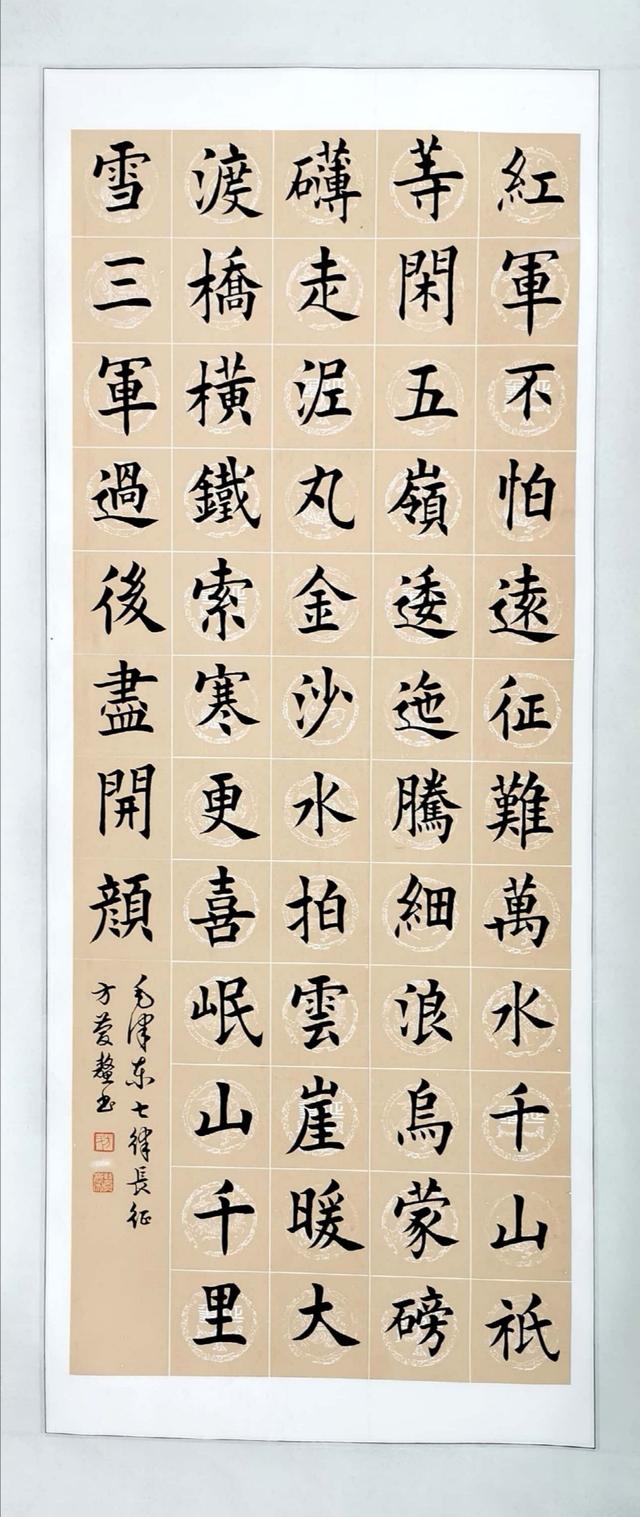 紅軍不怕遠征難萬水千山祇
等閑五嶺逶迤騰細浪烏蒙磅
礴走泥丸金沙水拍雲崖暖大
渡橋橫鐵索寒更喜岷山千里
雪三軍過後盡開顔
毛泽东七律長征
方鳌书